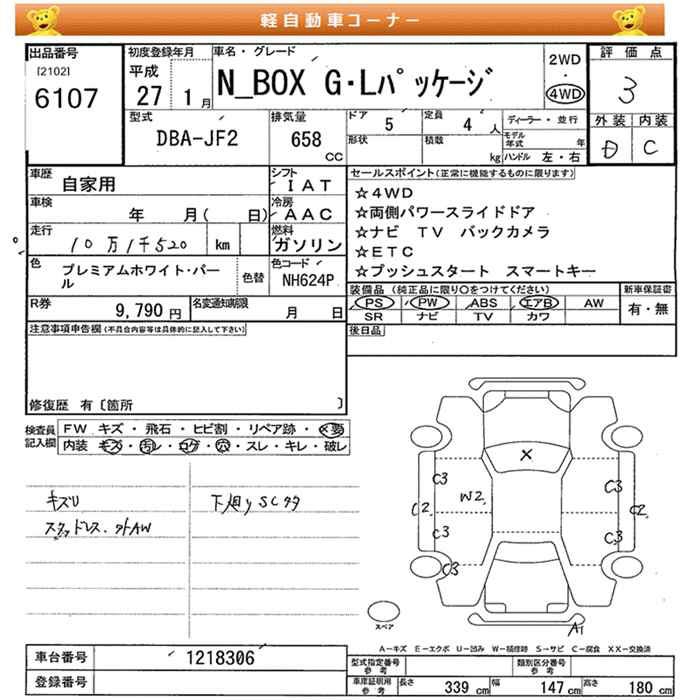 軽自動車コーナー
出品番号
[2102]
6107
初度登録年月
平成
27 1月
車名・グレード
N_BOX G・Lパッケージ
2WD
・
4WD
評価点
3
外装 内装
D C
型式
DBA-JF2
排気量
658
CC
ドア
5
定員
4 人
形状
積数
kg
ディーラー・並行
モデル年式 年
ハンドル 左・右
車歴
自家用
シフト
IAT
車検
年 月( 日)
冷房
AAC
走行
10万1千520 km
燃料
ガソリン
色
プレミアムホワイト・パール
色替
色コード
NH624P
R券
9,790 円
名変通知期限
月 日
セールスポイント(正常に機能するものに限ります)
☆4WD
☆両側パワースライドドア
☆ナビ TV バックカメラ
☆ETC
☆プッシュスタート スマートキー
装備品 (純正品に限り○をつけてください)
新車保証書
PS PW ABS エアB AW
SR ナビ TV カワ
有・無
後日品
注意事項申告欄(不具合内容等は具体的に記入して下さい)
修復歴 有〔箇所 〕
検査員記入欄
FW キズ・飛石・ヒビ割・リペア跡・×要
内装 キズ・汚レ・コゲ・穴・スレ・キレ・破レ
キズU
スタッドレス.外AW
下廻りSCサタ
X
C3
W2
C3
C2
C2
C3
C3
C3
A1
スペア
A−キズ E−エクボ U−凹み W−補修跡 S−サビ C−腐食 XX−交換済
車台番号
1218306
登録番号
型式指定番号
参考
類別区分番号
参考
車庫証明用
参考
長さ 339 cm
幅 147 cm
高さ 180 cm